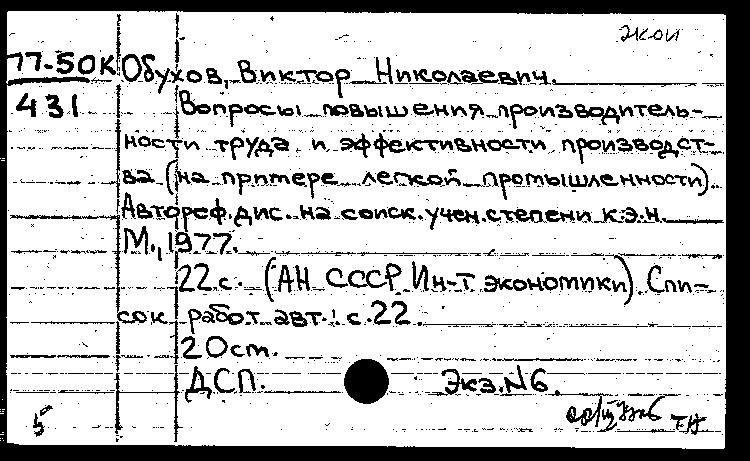 экон
77-50К Обухов, Виктор Николаевич.
431 Вопросы повышения производитель-
ности труда и эффективности производст-
ва (на примере легкой промышленности).
Автореф. дис. на соиск. учен. степени к.э.н.
М., 1977.
22 с. (АН СССР. Ин-т экономики). Спи-
сок работ авт.: с. 22.
20 ст.
ДСП. Экз. N6.
5